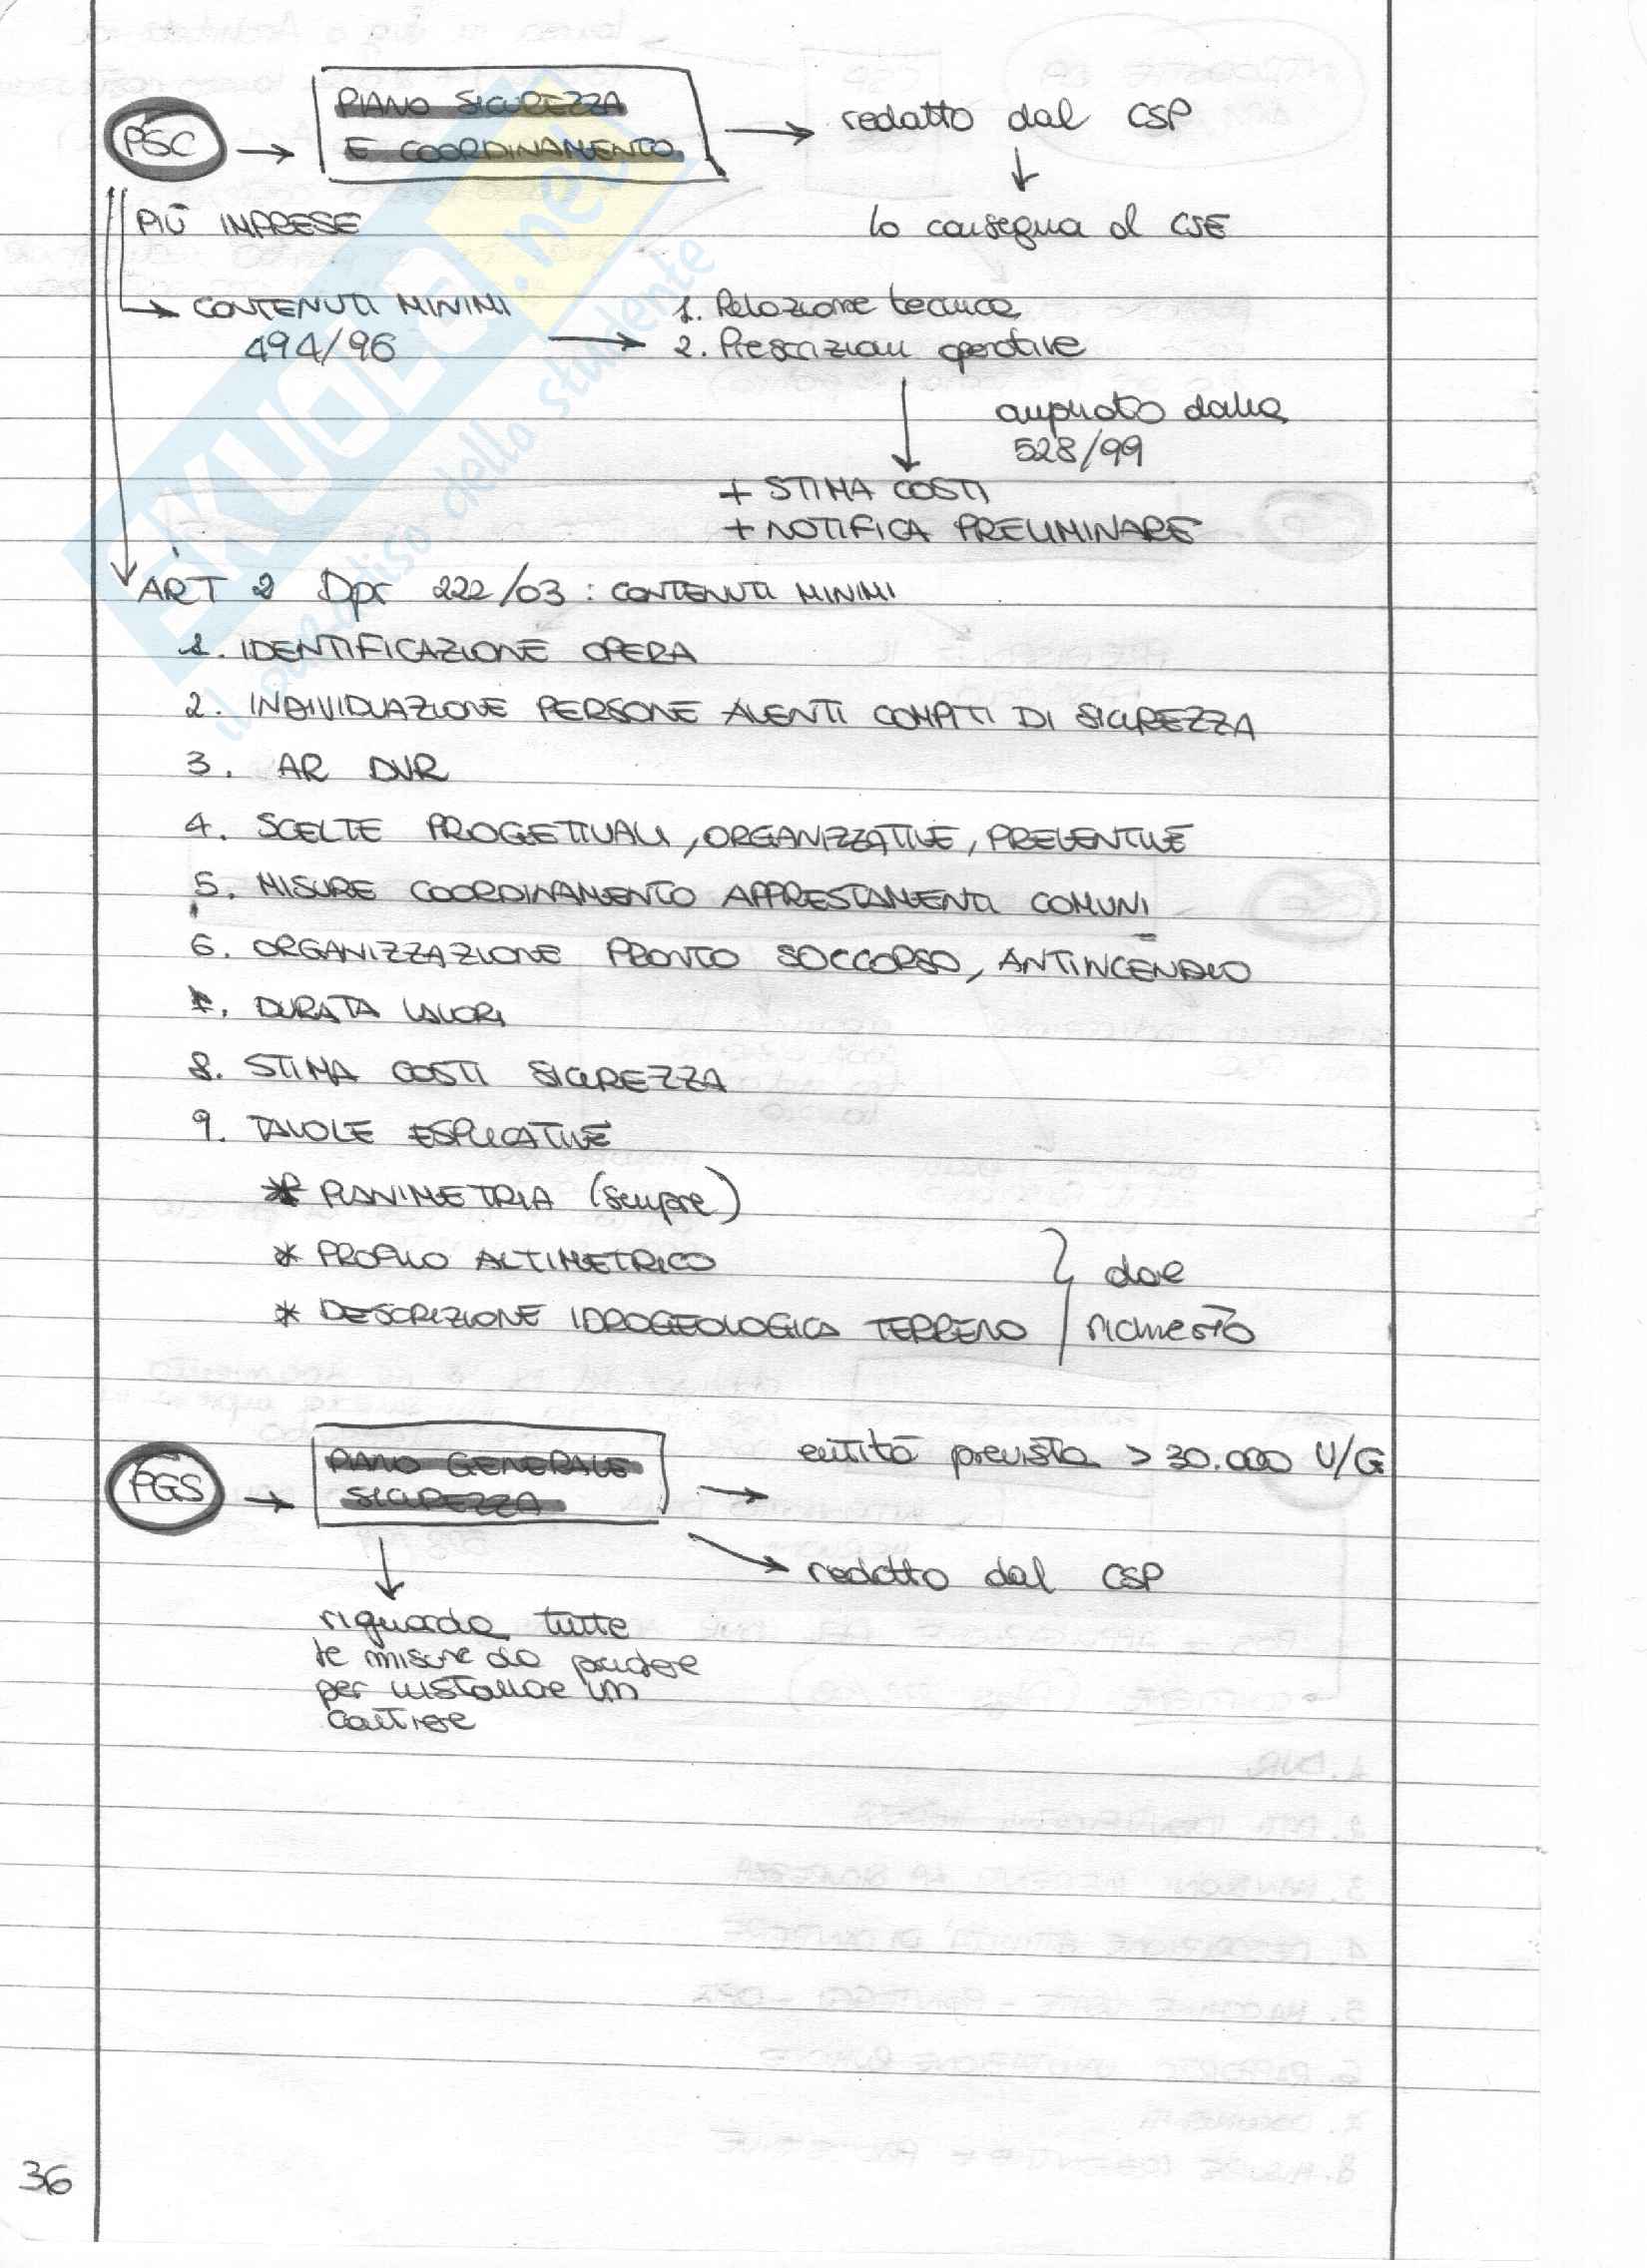 PSC → PIANO SICUREZZA E COORDINAMENTO → redatto dal CSP
↓
PIÙ IMPRESE
lo consegna al CSE
→ CONTENUTI MINIMI
494/96 →
1. Relazione tecnica
2. Prescrizioni operative
↓ ampliato dalla
528/99
+ STIMA COSTI
+ NOTIFICA PRELIMINARE
ART 2 Dpr 222/03 : CONTENUTI MINIMI
1. IDENTIFICAZIONE OPERA
2. INDIVIDUAZIONE PERSONE AVENTI COMPITI DI SICUREZZA
3. AR DVR
4. SCELTE PROGETTUALI, ORGANIZZATIVE, PREVENTIVE
5. MISURE COORDINAMENTO APPRESTAMENTI COMUNI
6. ORGANIZZAZIONE PRONTO SOCCORSO, ANTINCENDIO
7. DURATA LAVORI
8. STIMA COSTI SICUREZZA
9. TAVOLE ESPLICATIVE
* PLANIMETRIA (sempre)
* PROFILO ALTIMETRICO
* DESCRIZIONE IDROGEOLOGICA TERRENO } dove
richiesto
PGS → PIANO GENERALE SICUREZZA → entità prevista > 30.000 U/G
→ redatto dal CSP
↓
riguarda tutte
le misure da prendere
per installare un
cantiere
36
SKUOLA.net
il paradiso dello studente